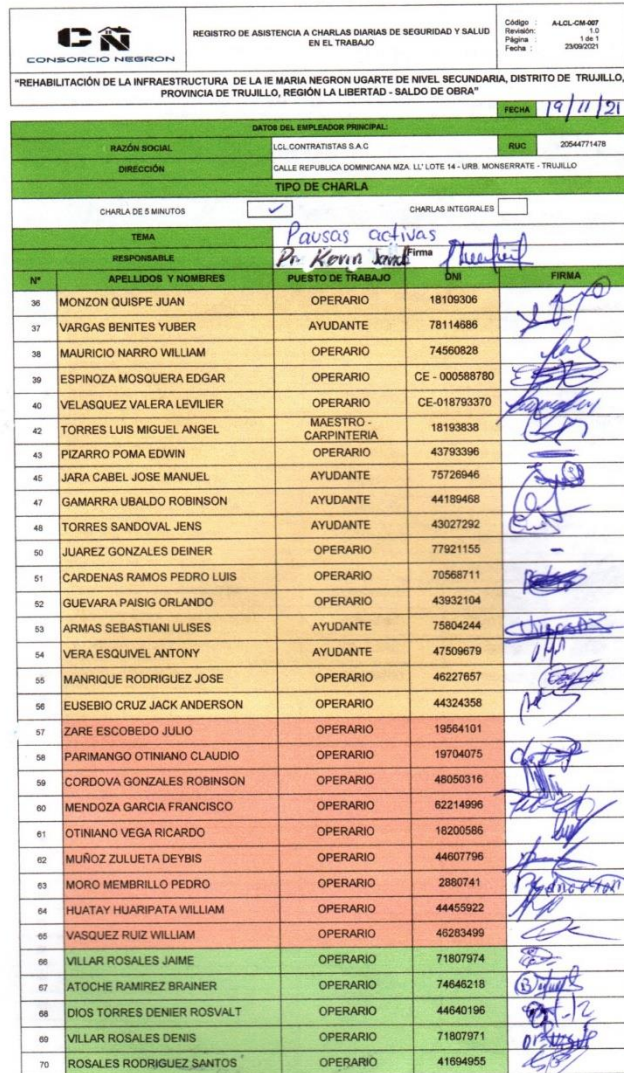 CÑ
CONSORCIO NEGRON
REGISTRO DE ASISTENCIA A CHARLAS DIARIAS DE SEGURIDAD Y SALUD
EN EL TRABAJO
Código : A-LCL-CM-007
Revisión: 1.0
Página : 1 de 1
Fecha : 23/09/2021
"REHABILITACIÓN DE LA INFRAESTRUCTURA DE LA IE MARIA NEGRON UGARTE DE NIVEL SECUNDARIA, DISTRITO DE TRUJILLO,
PROVINCIA DE TRUJILLO, REGIÓN LA LIBERTAD - SALDO DE OBRA"
FECHA 19/11/21
DATOS DEL EMPLEADOR PRINCIPAL:
RAZÓN SOCIAL LCL.CONTRATISTAS S.A.C RUC 20544771478
DIRECCIÓN CALLE REPUBLICA DOMINICANA MZA. LL' LOTE 14 - URB. MONSERRATE - TRUJILLO
TIPO DE CHARLA
CHARLA DE 5 MINUTOS ✓ CHARLAS INTEGRALES
TEMA Pausas activas
RESPONSABLE Kevin Firma
N° APELLIDOS Y NOMBRES PUESTO DE TRABAJO DNI FIRMA
36 MONZON QUISPE JUAN OPERARIO 18109306
37 VARGAS BENITES YUBER AYUDANTE 78114686
38 MAURICIO NARRO WILLIAM OPERARIO 74560828
39 ESPINOZA MOSQUERA EDGAR OPERARIO CE - 000588780
40 VELASQUEZ VALERA LEVILIER OPERARIO CE-018793370
42 TORRES LUIS MIGUEL ANGEL MAESTRO - CARPINTERIA 18193838
43 PIZARRO POMA EDWIN OPERARIO 43793396
45 JARA CABEL JOSE MANUEL AYUDANTE 75726946
47 GAMARRA UBALDO ROBINSON AYUDANTE 44189468
48 TORRES SANDOVAL JENS AYUDANTE 43027292
50 JUAREZ GONZALES DEINER OPERARIO 77921155 -
51 CARDENAS RAMOS PEDRO LUIS OPERARIO 70568711
52 GUEVARA PAISIG ORLANDO OPERARIO 43932104
53 ARMAS SEBASTIANI ULISES AYUDANTE 75804244
54 VERA ESQUIVEL ANTONY AYUDANTE 47509679
55 MANRIQUE RODRIGUEZ JOSE OPERARIO 46227657
56 EUSEBIO CRUZ JACK ANDERSON OPERARIO 44324358
57 ZARE ESCOBEDO JULIO OPERARIO 19564101
58 PARIMANGO OTINIANO CLAUDIO OPERARIO 19704075
59 CORDOVA GONZALES ROBINSON OPERARIO 48050316
60 MENDOZA GARCIA FRANCISCO OPERARIO 62214996
61 OTINIANO VEGA RICARDO OPERARIO 18200586
62 MUÑOZ ZULUETA DEYBIS OPERARIO 44607796
63 MORO MEMBRILLO PEDRO OPERARIO 2880741
64 HUATAY HUARIPATA WILLIAM OPERARIO 44455922
65 VASQUEZ RUIZ WILLIAM OPERARIO 46283499
66 VILLAR ROSALES JAIME OPERARIO 71807974
67 ATOCHE RAMIREZ BRAINER OPERARIO 74646218
68 DIOS TORRES DENIER ROSVALT OPERARIO 44640196
69 VILLAR ROSALES DENIS OPERARIO 71807971
70 ROSALES RODRIGUEZ SANTOS OPERARIO 41694955